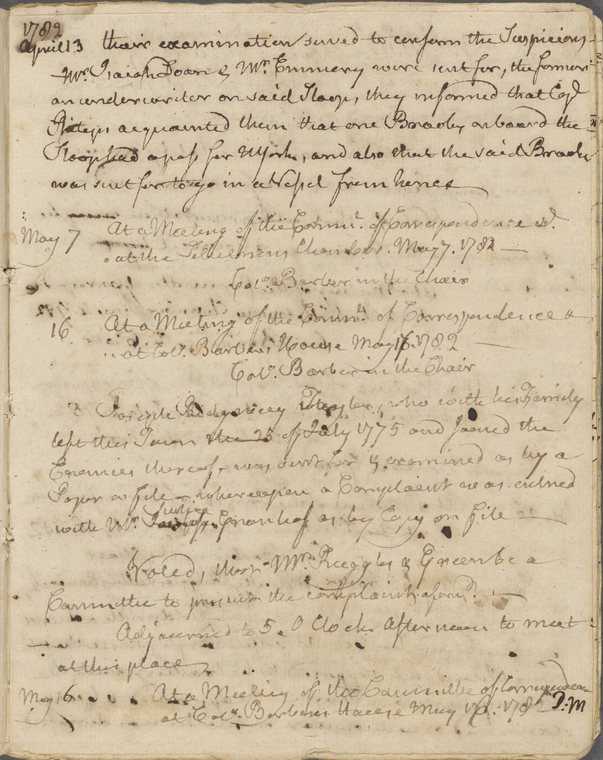 1782
April 13 their examination served to confirm the Suspicions
Mr. Isaiah Doan & Mr. Emmery were sent for, the former
an underwriter on said Sloop, they informed that
acquainted them that one Brady on board the
Sloop had a pass for NYork, and also that the said Brady
was sent for to go in a Vessel from hence
May 7 At a Meeting of the Commee. of Correspondence &c.
at the Selectmens Chamber May 7. 1782
Colo. Barber in the Chair
16 At a Meeting of the Commee. of Correspondence &
at Colo. Barbers House May 16. 1782
Colo. Barber in the Chair
Joseph who with his Family
left this Town the 25 of July 1775 and Joined the
Enemies thereof was sent for & examined as by a
Paper on file whereupon a Complaint was entred
with Mr. Justice Greenleaf as by Copy on File
Voted, that Mr. Ruggles & Green be a
Committee to persue the complaint aforsd.
Adjourned to 5. O Clock Afternoon to meet
at this place
May 16. At a Meeting of the Committee of Correspondence
at Colo. Barbers House May 16. 1782 P.M